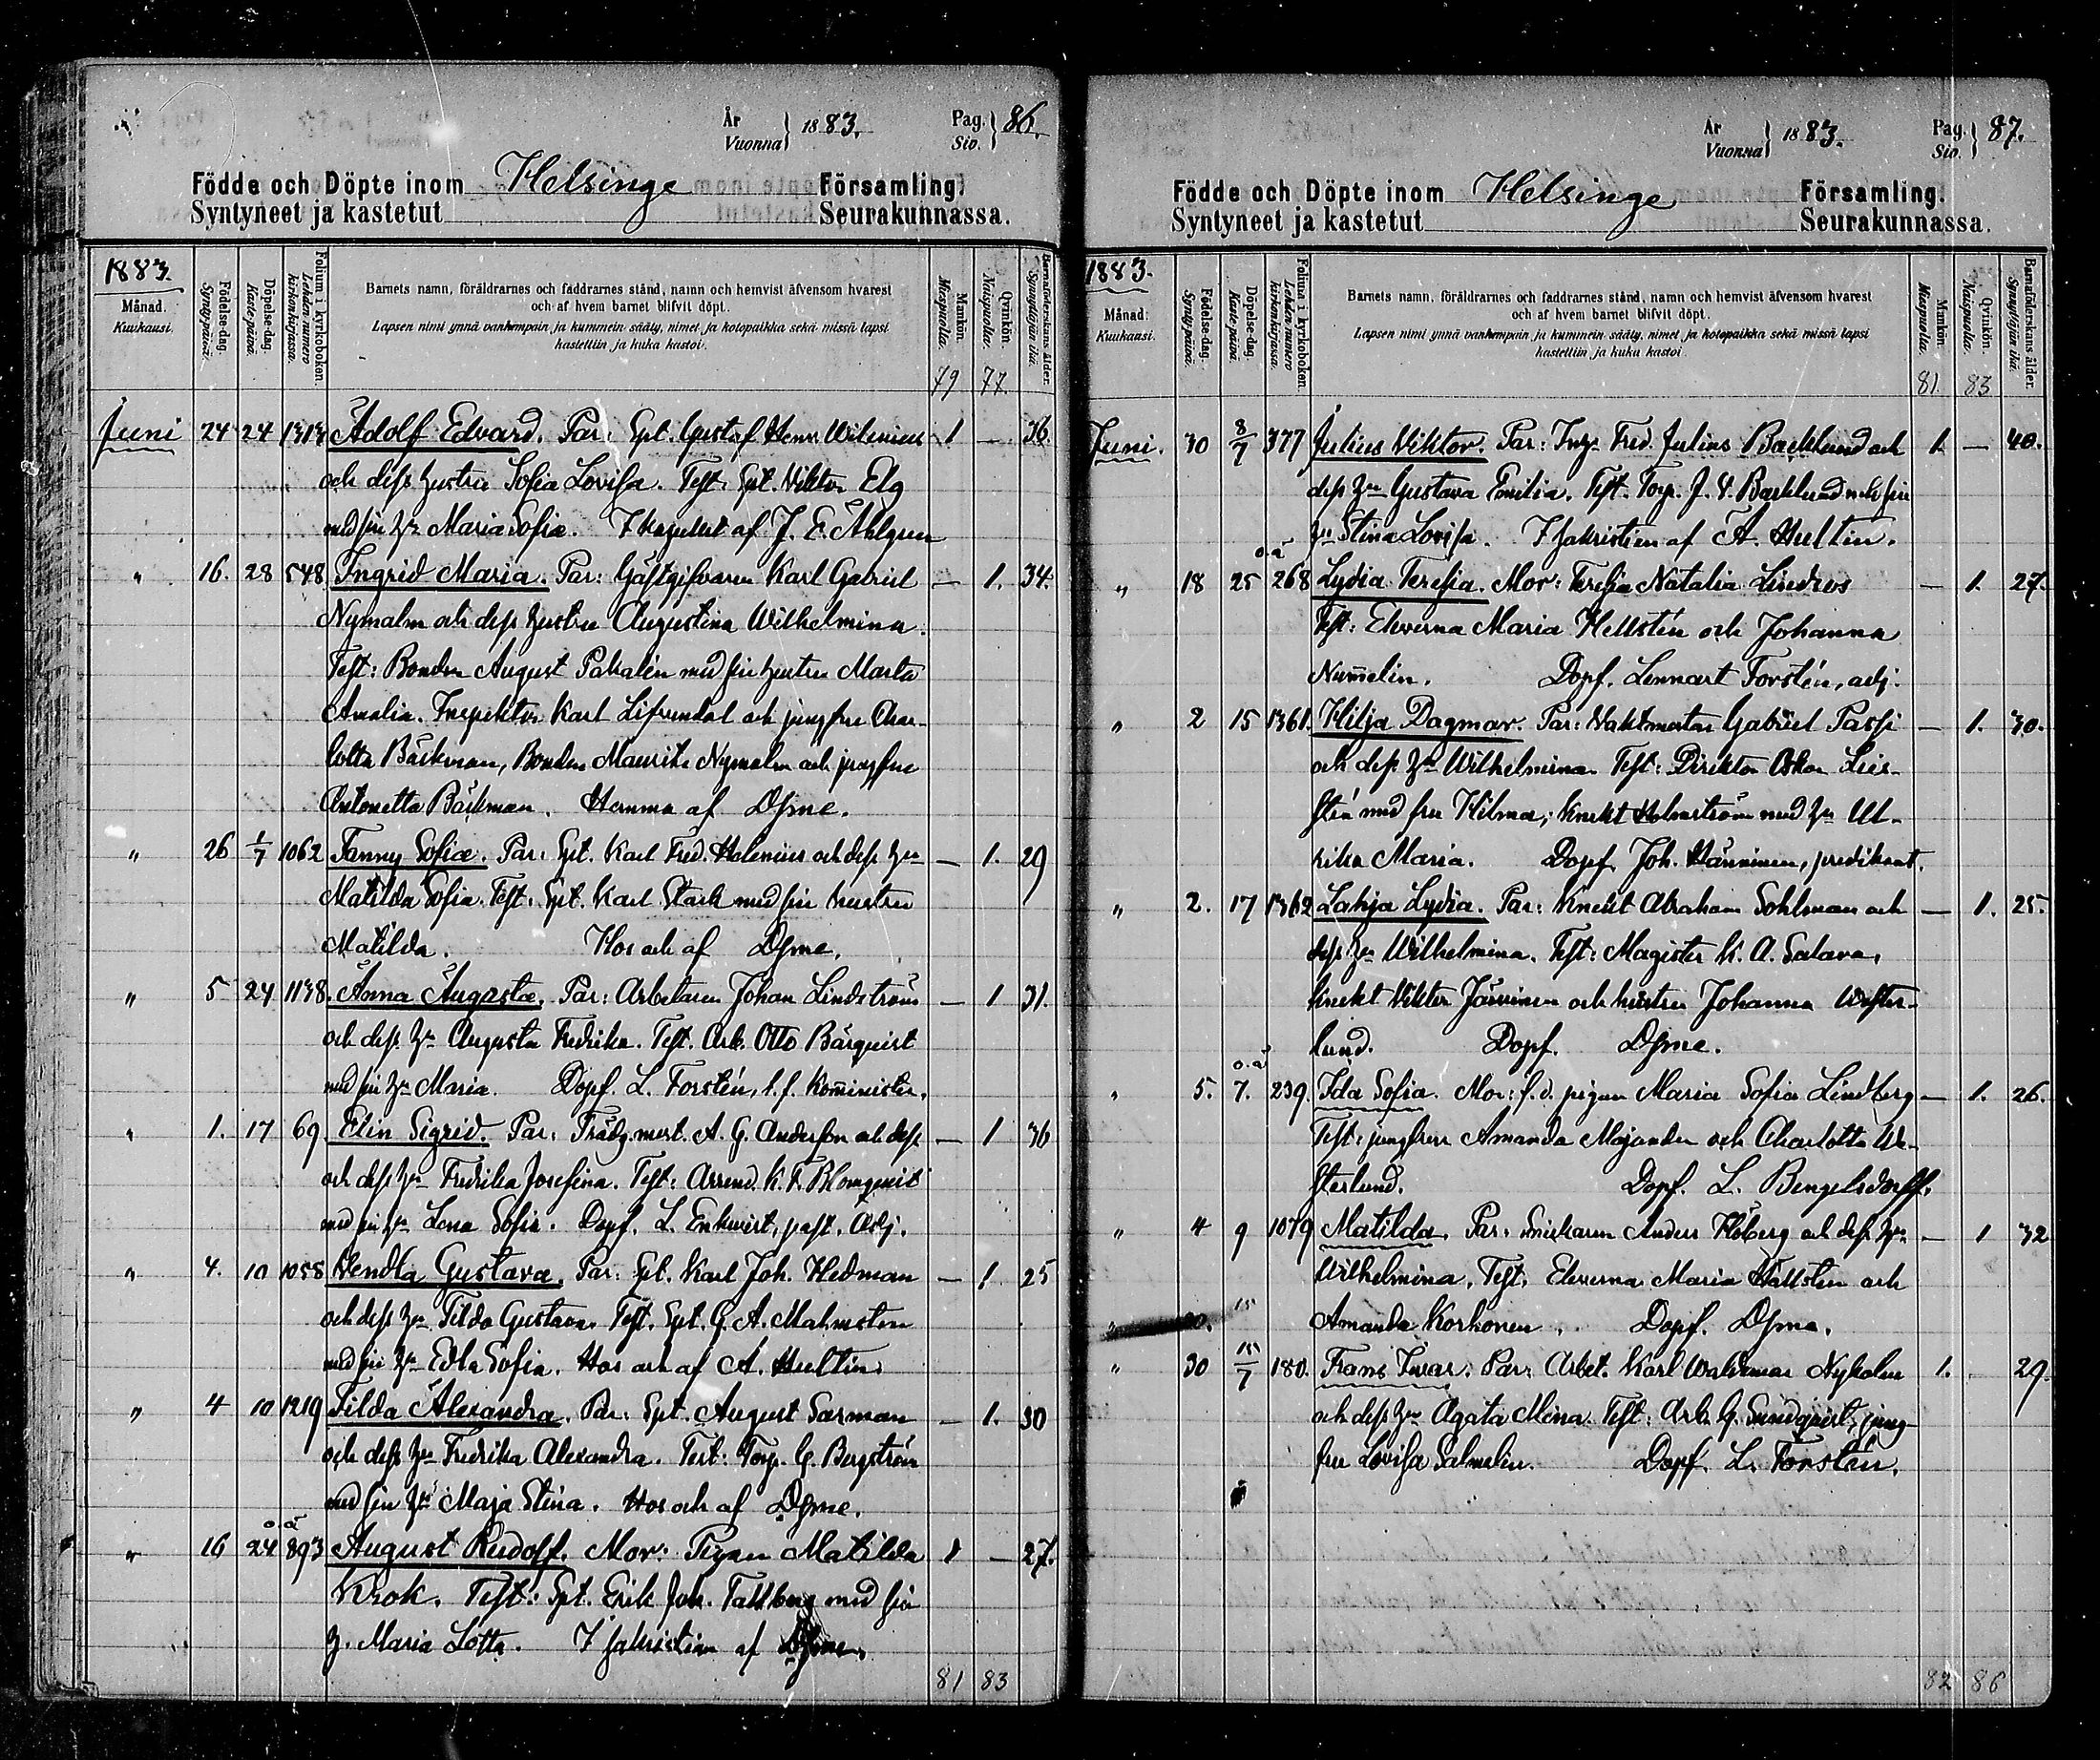 År
Vuonna
1883.
Pag.
Siv.
86.
Födde och Döpte inom Helsinge Församling.
Syntyneet ja kastetut Seurakunnassa.
1883.
Månad.
Kuukausi.
Födelse-dag.
Synty-päivä.
Döpelse-dag.
Kaste-päivä.
Folium i kyrkoboken.
Lehden numero kirkonkirjassa.
Barnets namn, föräldrarnes och faddrarnes stånd, namn och hemvist äfvensom hvarest
och af hvem barnet blifvit döpt.
Lapsen nimi ynnä vanhempain ja kummein sääty, nimet ja kotopaikka sekä missä lapsi
kastettiin ja kuka kastoi.
Mankön.
Miespuolia.
Qvinkön.
Naispuolia.
Barnaföderskans ålder.
Synnyttäjän ikä.
79 77.
Juni 24 24 1313 Adolf Edvard. Par: Spt. Gustaf Henr. Wilenius 1 — 36.
och dess hustru Sofia Lovisa. Test: Spt. Viktor Elg
med sin h:u Maria Sofia. I kapellet af J. E. Ahlgren
" 16. 28 548 Ingrid Maria. Par: Gästgifvaren Karl Gabriel — 1. 34.
Nymalm och dess hustru Augustina Wilhelmina.
Test: Bonden August Pakalén med sin hustru Marta
Amalia. Inspektor Karl Lifvendal och jungfru Char-
lotta Bäckman, Bonden Maurits Nymalm och jungfru
Antonetta Bäckman. Hemma af D:sme.
" 26 1/7 1062 Fanny Sofia. Par: Spt. Karl Fred. Helenius och dess h:u — 1. 29
Matilda Sofia. Test: Spt. Karl Stark med sin hustru
Matilda. Hos och af D:sme.
" 5 24 1138. Anna Augusta. Par: Arbetaren Johan Lindström — 1 31.
och dess h:u Augusta Fredrika. Test. Arb. Otto Bärquist
med sin h:u Maria. Döpf. L. Forstén, t. f. Kom̄inister.
" 1. 17 69 Elin Sigrid. Par: Trädg.mest. A. G. Andersson och dess — 1 36
och dess h:u Fredrika Josefina. Test: Arrend. K. F. Blomqvist
med sin h:u Lena Sofia. Döpf. L. Enkvist, past. Adj.
" 4. 10 1058 Vendla Gustava. Par: Spt. Karl Joh. Hedman — 1. 25
och dess h:u Tilda Gustava. Test. Spt. G. A. Malmsten
med sin h:u Edla Sofia. Hos och af A. Hultin.
" 4 10 1219 Tilda Alexandra. Par: Spt. August Sarman — 1. 30
och dess h:u Fredrika Alexandra. Test: Torp. G. Bergström
med sin h:u Maja Stina. Hos och af D:sme.
o. ä
" 16 24 893 August Rudolf. Mor: Pigan Matilda 1 — 27.
Krok. Test: Spt. Erik Joh. Tallberg med sin
h. Maria Lotta. I sakristian af D:sme.
81 83
År
Vuonna
1883.
Pag.
Siv.
87.
Födde och Döpte inom Helsinge Församling.
Syntyneet ja kastetut Seurakunnassa.
1883.
Månad.
Kuukausi.
Födelse-dag.
Synty-päivä.
Döpelse-dag.
Kaste-päivä.
Folium i kyrkoboken.
Lehden numero kirkonkirjassa.
Barnets namn, föräldrarnes och faddrarnes stånd, namn och hemvist äfvensom hvarest
och af hvem barnet blifvit döpt.
Lapsen nimi ynnä vanhempain ja kummein sääty, nimet ja kotopaikka sekä missä lapsi
kastettiin ja kuka kastoi.
Mankön.
Miespuolia.
Qvinkön.
Naispuolia.
Barnaföderskans ålder.
Synnyttäjän ikä.
81. 83
Juni. 30 8/7 377 Julius Viktor. Par: Fred. Julius Backlund och 1. — 40.
dess h:u Gustava Emilia. Test. Torp. J. V. Backlund och sin
h:u Stina Lovisa. I sakristian af A. Hultin.
o. ä
" 18 25 268 Lydia Teresia. Mor: Teresia Natalia Lindroos — 1. 27.
Test: Eleverna Maria Hellstén och Johanna
Num̄elin. Döpf. Lennart Forstén, adj.
" 2 15 1361. Hilja Dagmar. Par: Vaktmästar Gabriel Passi — 1. 30.
och dess h:u Wilhelmina. Test: Direktor Oskar Lii-
stén med fru Hilma; knekt Holmström med h:u Ul-
rika Maria. Döpf. Joh. Hänninen, predikant.
" 2. 17 1362 Lahja Lydia. Par: Knekt Abraham Sohlman och — 1. 25.
dess h:u Wilhelmina. Test: Magister K. A. Salava,
knekt Viktor Järvinen och hustru Johanna Wester-
lund. Döpf. D:sme.
o. ä
" 5. 7. 239. Ida Sofia. Mor: f. d. pigan Maria Sofia Lindberg — 1. 26.
Test: jungfrur Amanda Majander och Charlotta We-
sterlund. Döpf. L. Bengelsdorff.
" 4 9 1079 Matilda. Par: Snickaren Anders Högberg och dess h:u — 1 32
Wilhelmina. Test. Eleverna Maria Hällstén och
" 30. 15 Amanda Korhonen. Döpf. D:sme.
" 30 15/7 180. Frans Ivar. Par: Arbet. Karl Waldemar Nyholm 1. 29.
och dess h:u Agata Mina. Test: Arb. G. Sundqvist, jung-
fru Lovisa Salmelin. Döpf. L. Forstén.
82 86